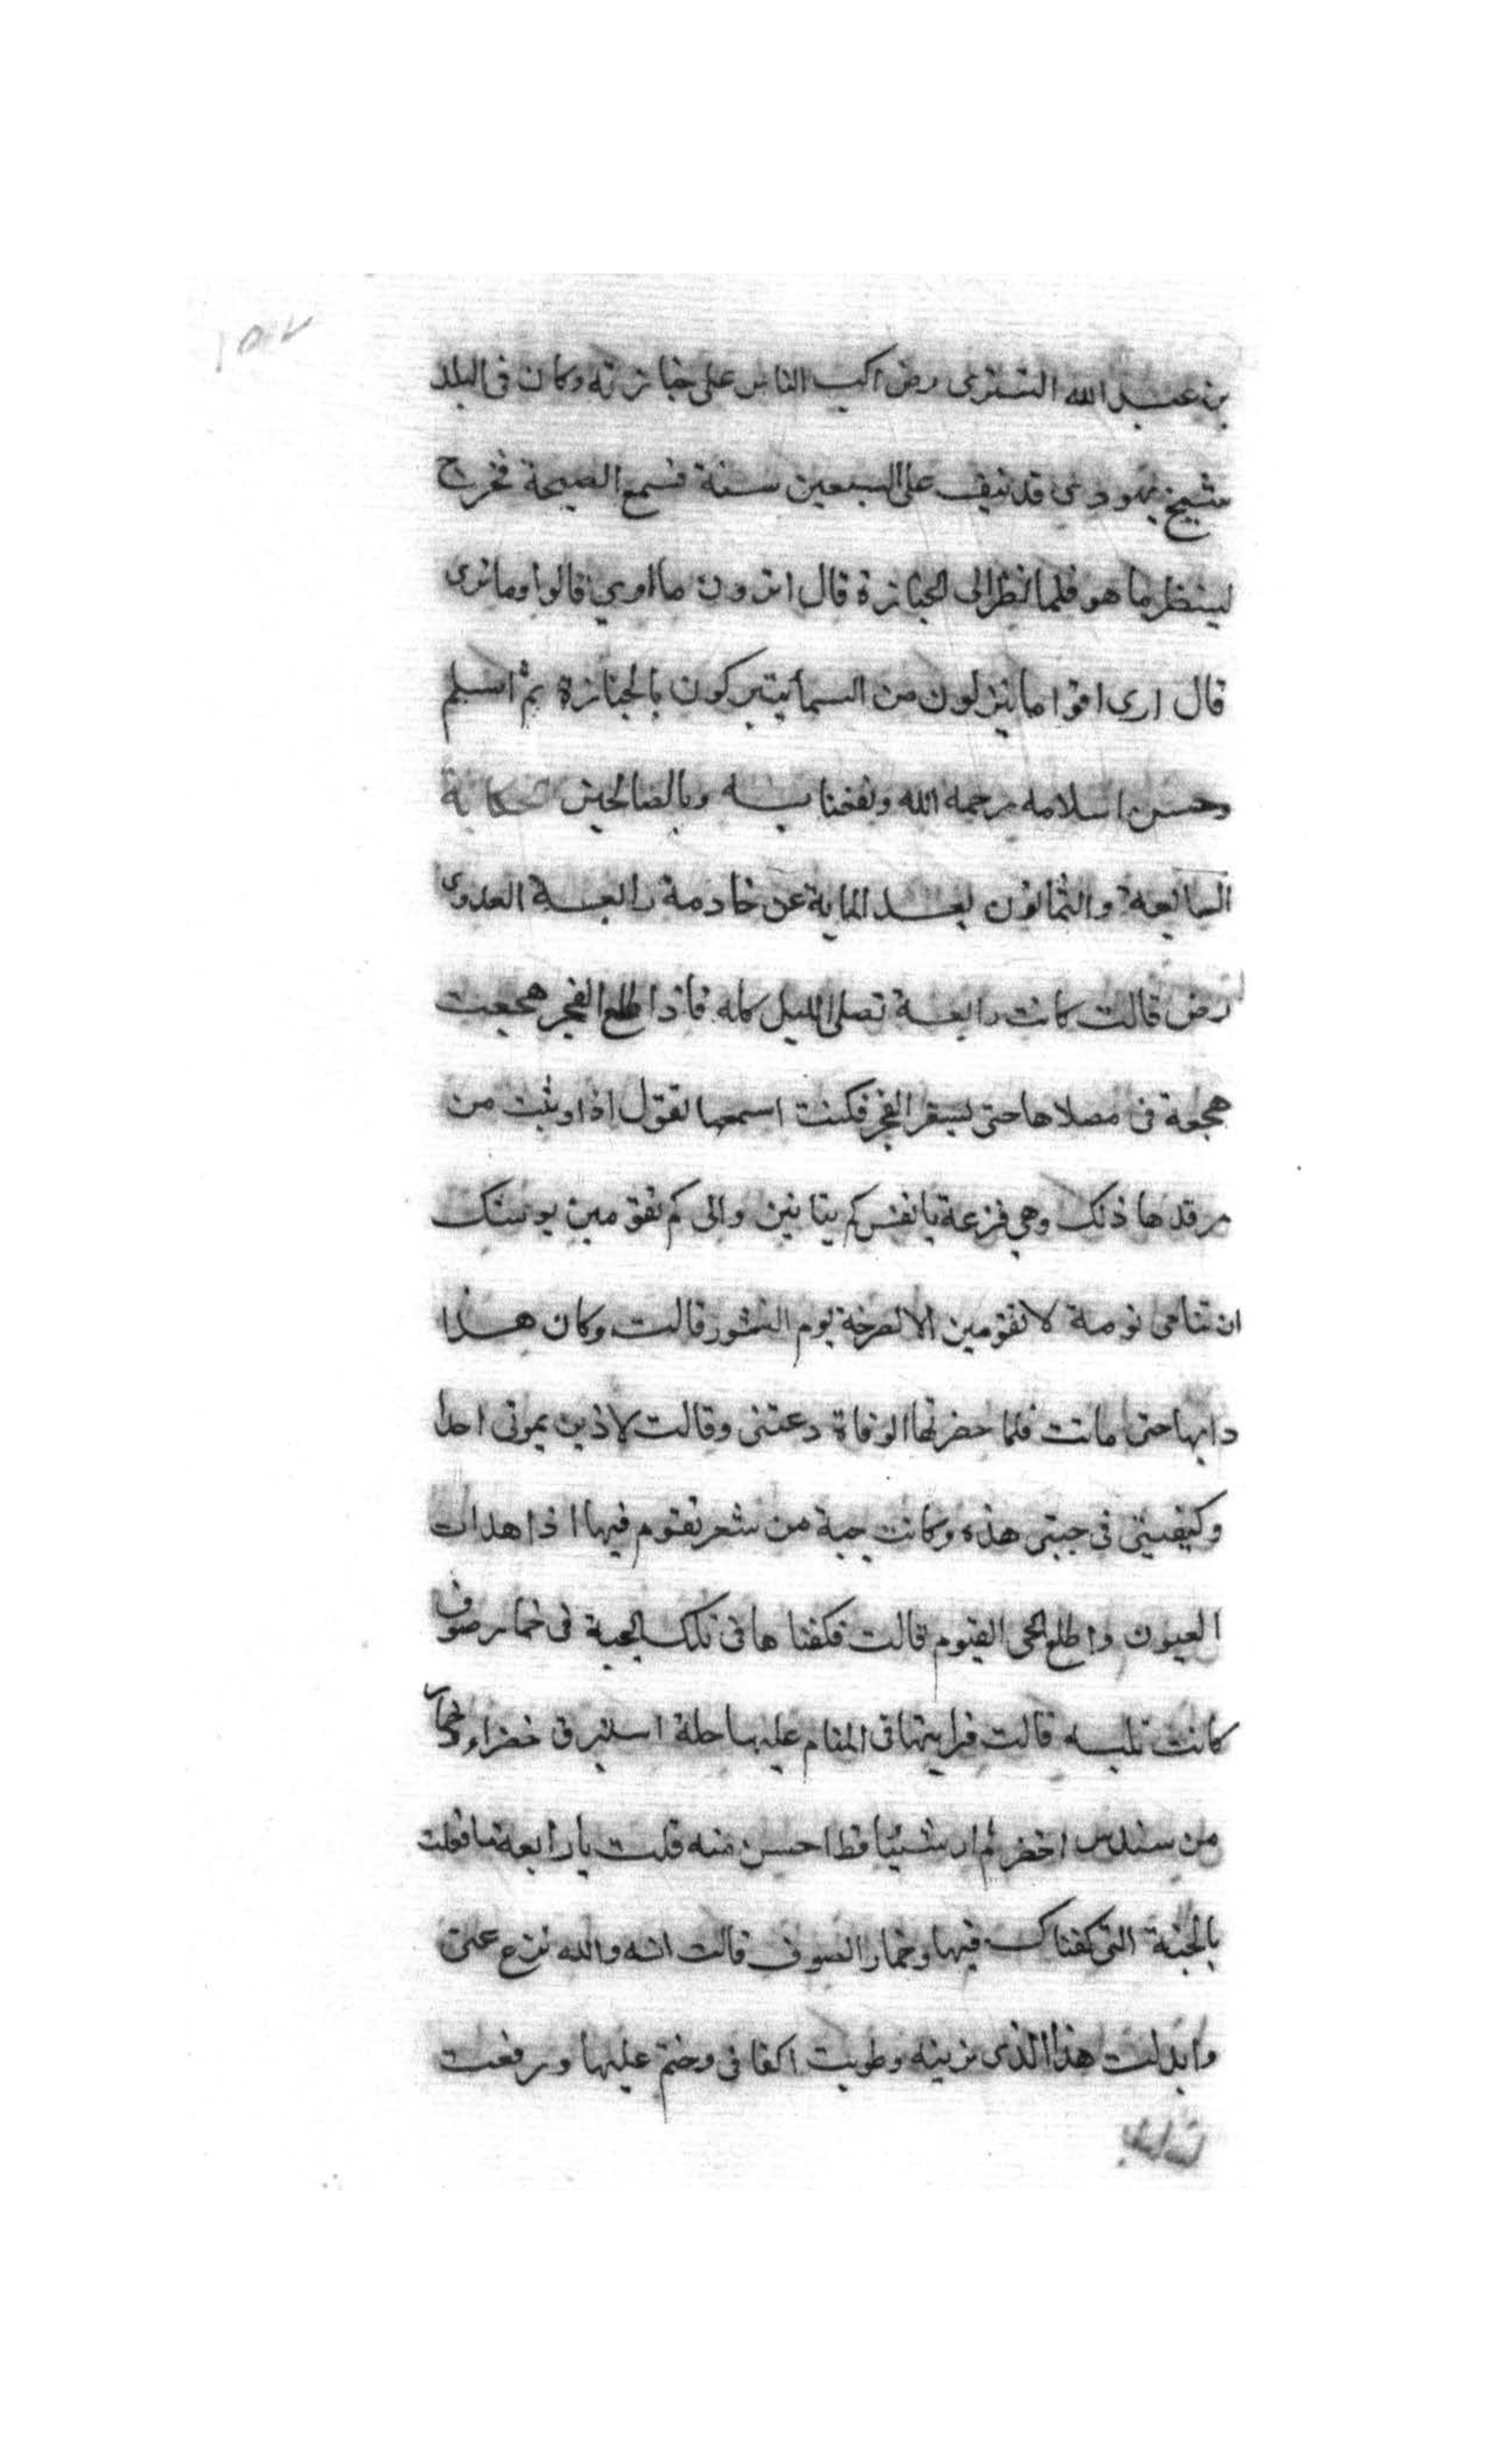 بن عبد الله التسترى رض اكب الناس على جنازته وكان فى البلد
شيخ يهودى قد نيف على السبعين سنة فسمع الصيحة فخرج
لينظر ما هو فلما نظر الى الجنازة قال اترون ما ارى قالوا وما ترى
قال ارى اقواما ينزلون من السما يتبركون بالجنازة ثم اسلم
وحسن اسلامه رحمه الله ونفعنا به وبالصالحين حكاية
السابعة والثمانون بعد الماية عن خادمة رابعة العدوى
رض قالت كانت رابعة تصلى الليل كله فاذا طلع الفجر هجعت
هجعة فى مصلاها حتى يسفر الفجر فكنت اسمعها تقول اذا وثبت من
مرقدها ذلك وهي فزعة يا نفس كم تنامين والى كم تقومين يوشك
ان تنامى نومة لا تقومين الا لصرخة يوم النشور قالت وكان هذا
دابها حتى ماتت فلما حضرتها الوفاة دعتنى وقالت لا تذين بموتى احدا
وكفنينى فى جبتى هذه وكانت جبة من شعر تقوم فيها اذا هدات
العيون واطلع الحى القيوم قالت فكفناها فى تلك الجبة فى خمار صوف
كانت تلبسه قالت فرايتها فى المنام عليها حلة استبرق خضراء وخمار
من سندس اخضر لم ار شيئا قط احسن منه قلت يا رابعة ما فعلت
بالجبة التى كفناك فيها وخمار الصوف قالت انه والله نزع عنى
وابدلت هذا الذى ترينه وطويت اكفانى وختم عليها ورفعت